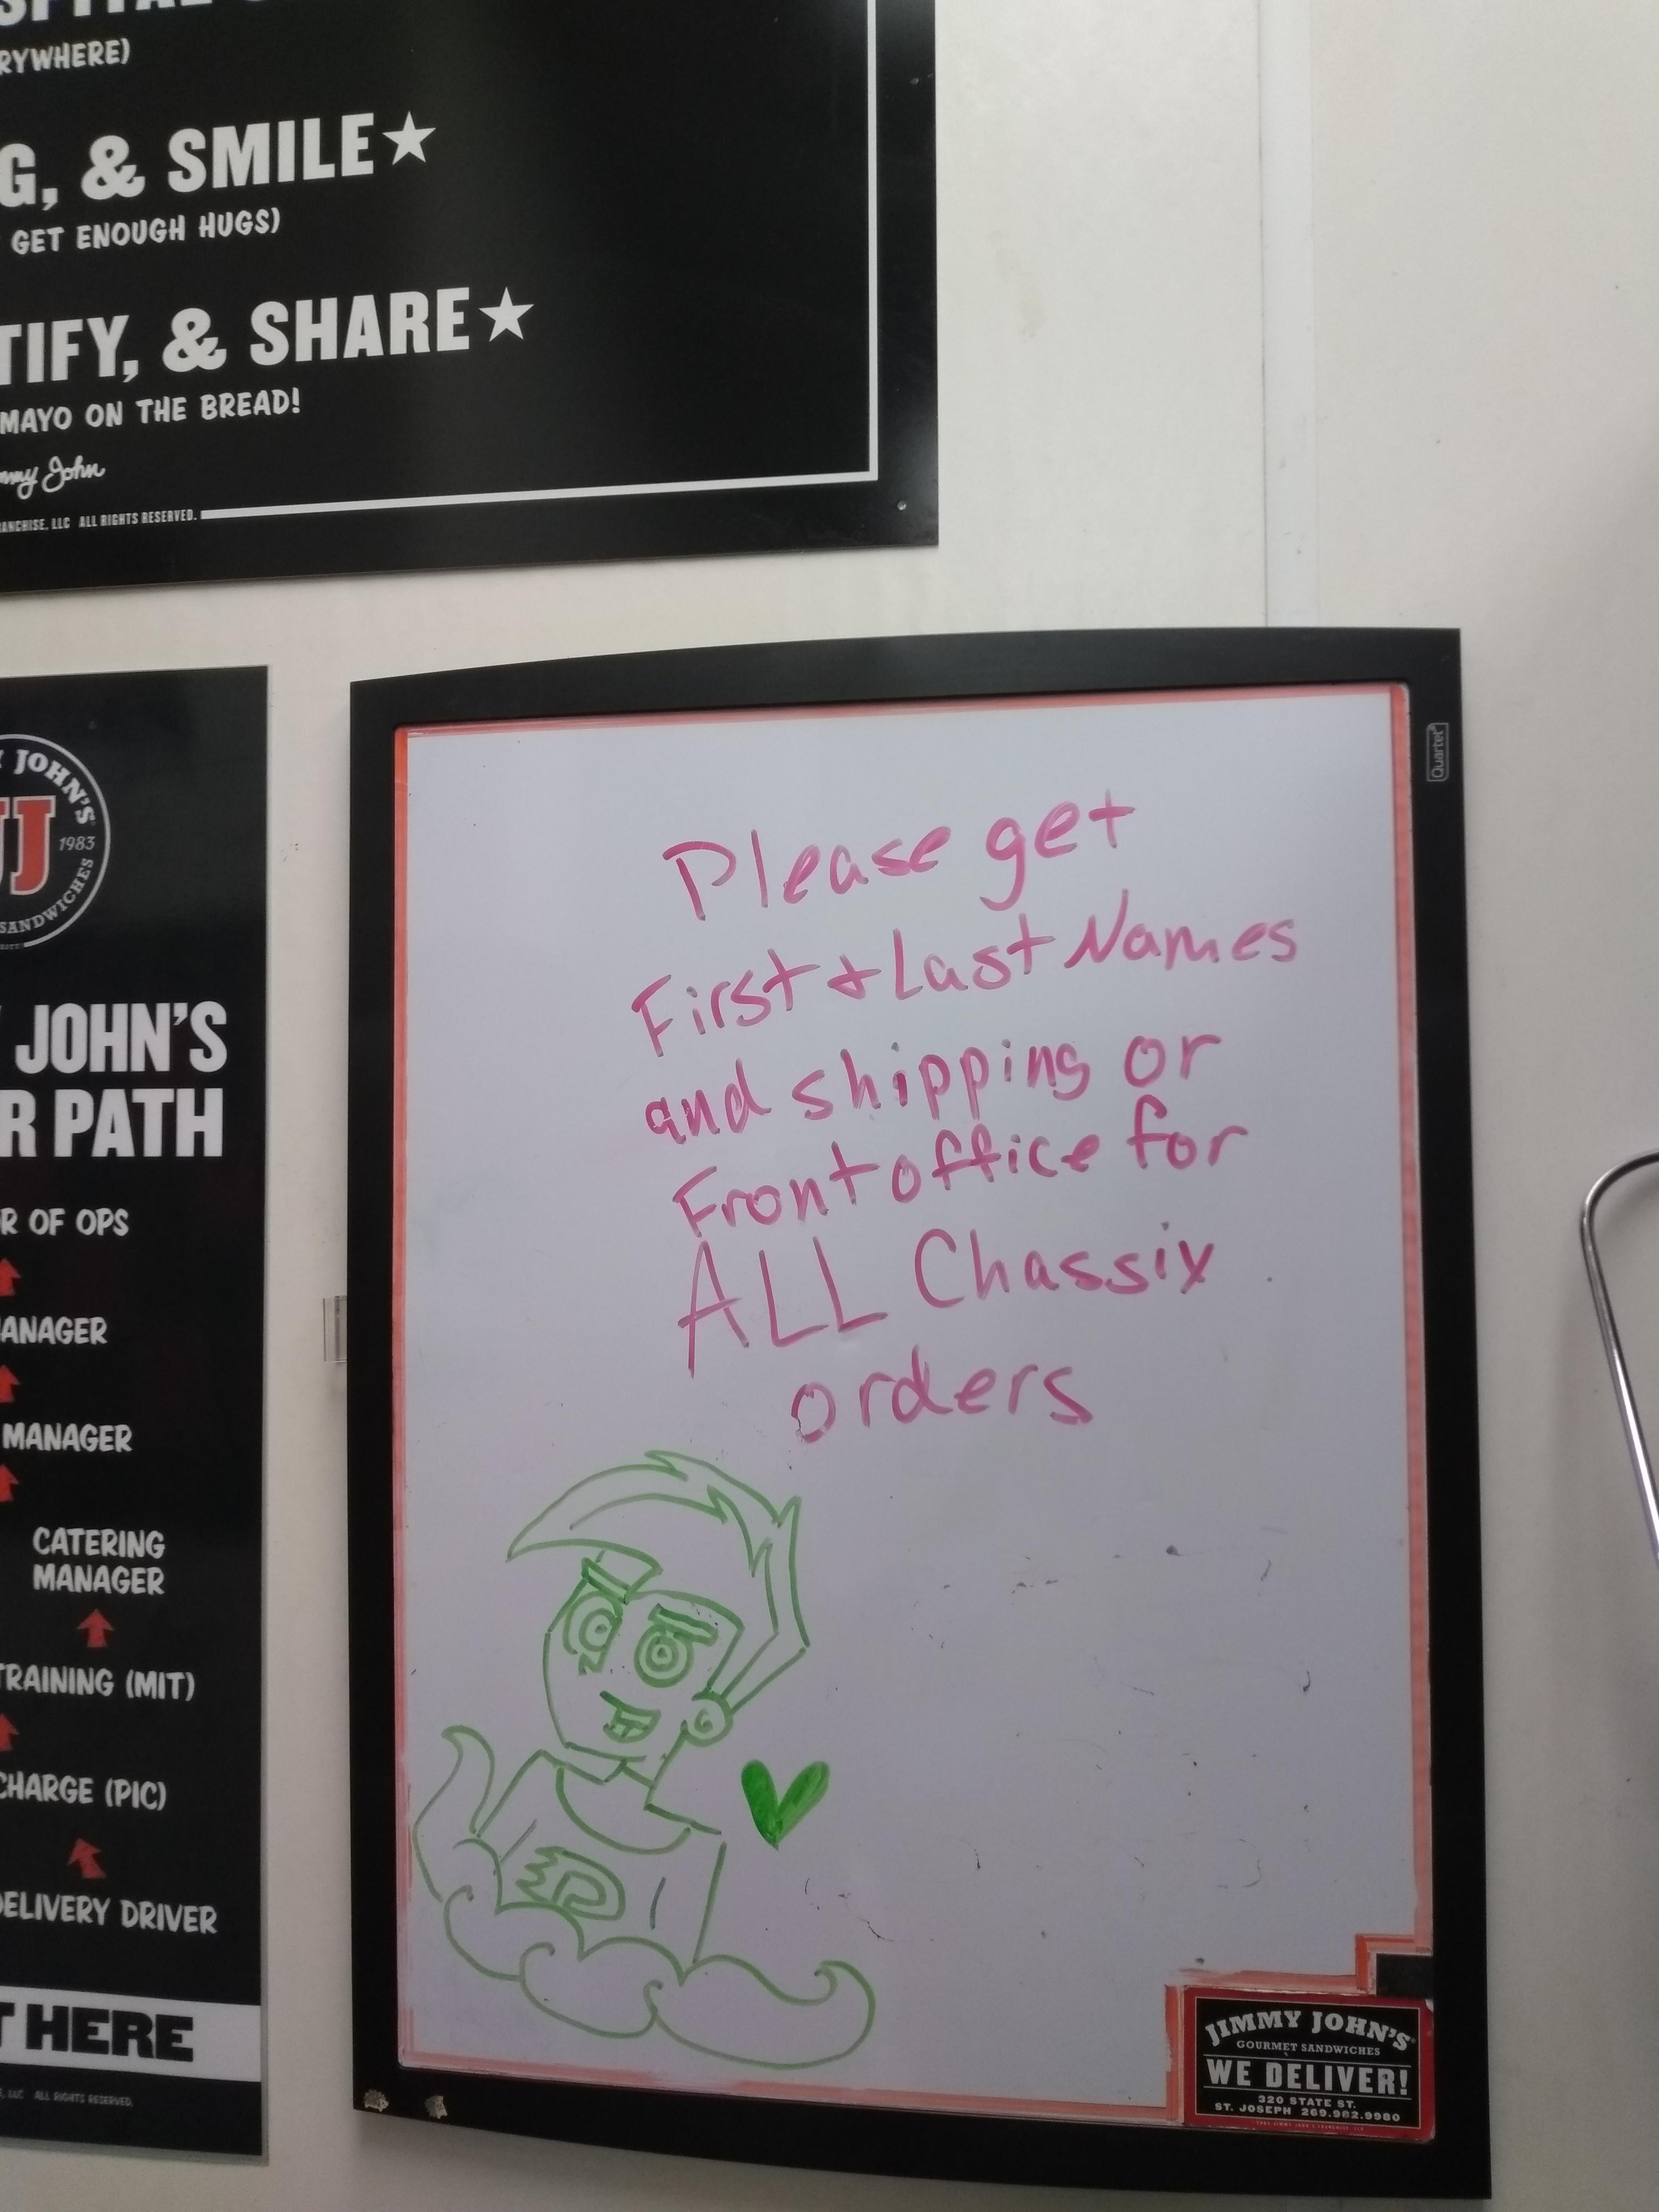 RYWHERE)
G, & SMILE★
GET ENOUGH HUGS)
TIFY, & SHARE★
MAYO ON THE BREAD!
my John
ANCHISE, LLC ALL RIGHTS RESERVED.
JOHN'S
JJ
1983
SANDWICHES
JOHN'S
R PATH
R OF OPS
ANAGER
MANAGER
CATERING
MANAGER
TRAINING (MIT)
CHARGE (PIC)
DELIVERY DRIVER
T HERE
LLC ALL RIGHTS RESERVED.
Quartet
Please get
First + Last Names
and shipping or
Front office for
ALL Chassix
orders
D
JIMMY JOHN'S
GOURMET SANDWICHES
WE DELIVER!
320 STATE ST.
ST. JOSEPH 269.982.9980